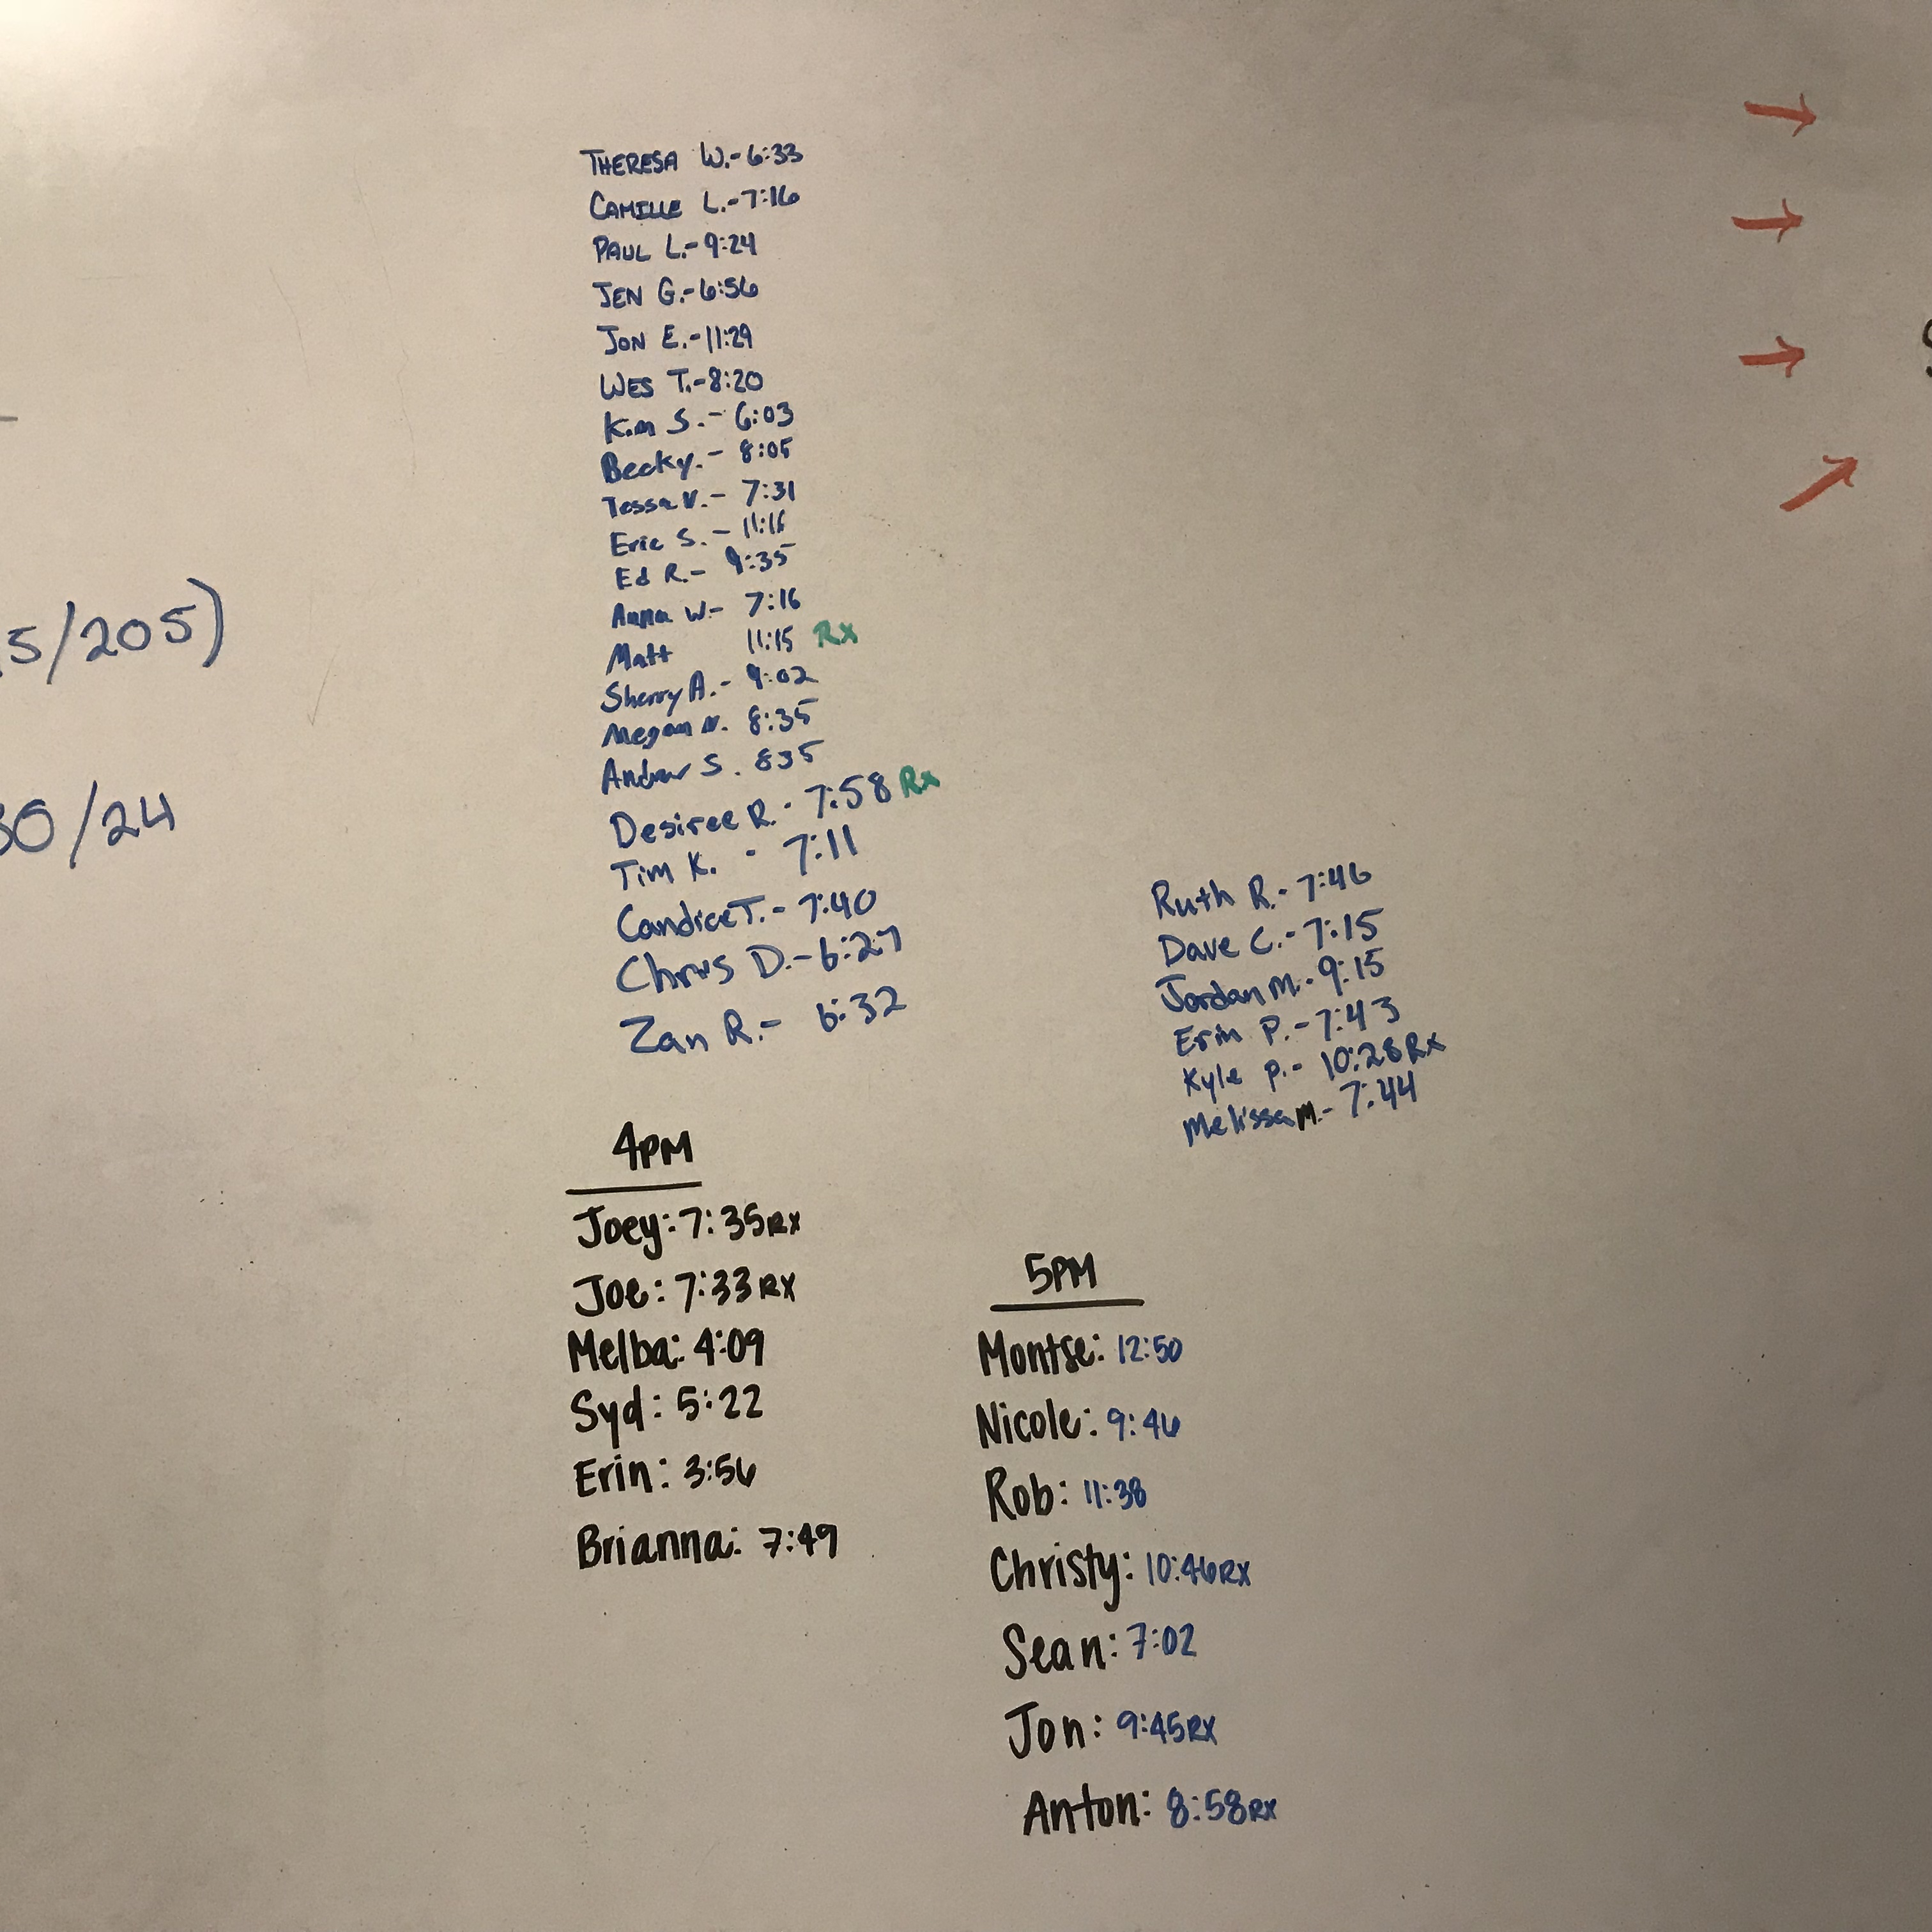 THERESA W.- 6:33
CAMILLE L.- 7:16
PAUL L.- 9:24
JEN G.- 6:56
JON E.- 11:29
WES T.- 8:20
Kim S.- 6:03
Becky.- 8:05
Tessa V.- 7:31
Eric S.- 11:16
Ed R.- 9:35
Anna W- 7:16
Matt 11:15 Rx
Sherry A.- 9:02
Megan N. 8:35
Andrew S. 835
Desiree R.- 7:58 Rx
Tim K. - 7:11
Candice T.- 7:40
Chris D.- 6:27
Zan R.- 6:32
5/205)
30/24
Ruth R.- 7:46
Dave C.- 7:15
Jordan M.- 9:15
Erin P.- 7:43
Kyle P.- 10:28 Rx
Melissa M.- 7:44
4PM
Joey: 7:35 RX
Joe: 7:33 RX
Melba: 4:09
Syd: 5:22
Erin: 3:56
Brianna: 7:49
5PM
Montse: 12:50
Nicole: 9:46
Rob: 11:38
Christy: 10:46 RX
Sean: 7:02
Jon: 9:45 RX
Anton: 8:58 RX